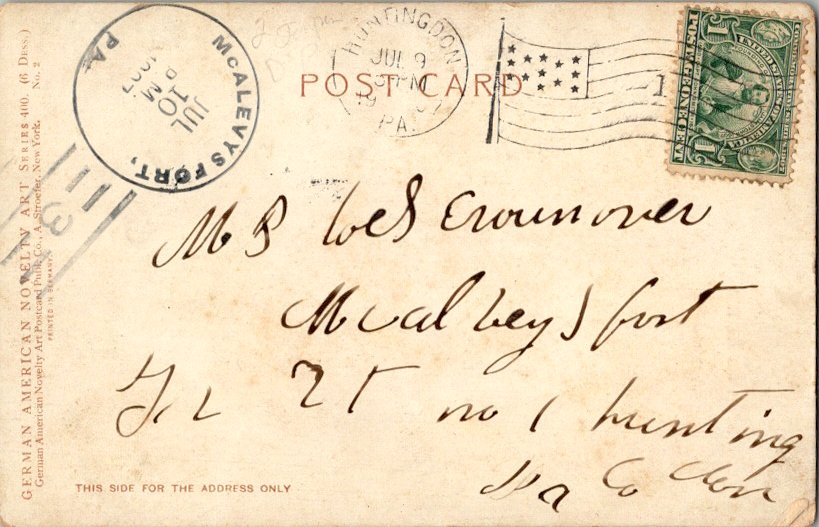 GERMAN AMERICAN NOVELTY ART SERIES 400. (6 DESS.)
German American Novelty Art Postcard Publ. Co., A. Stroefer, New York. No. 2
PRINTED IN GERMANY
McALEVYS FORT,
PA.
JUL
10
P M
1907
113
HUNTINGDON
JUL 9
PM
19 07
PA.
POST CARD
1 POSTAGE ONE CENT 1
UNITED STATES OF AMERICA
Mr B
Mcalveys fort
no 1 hunting
Co don
THIS SIDE FOR THE ADDRESS ONLY